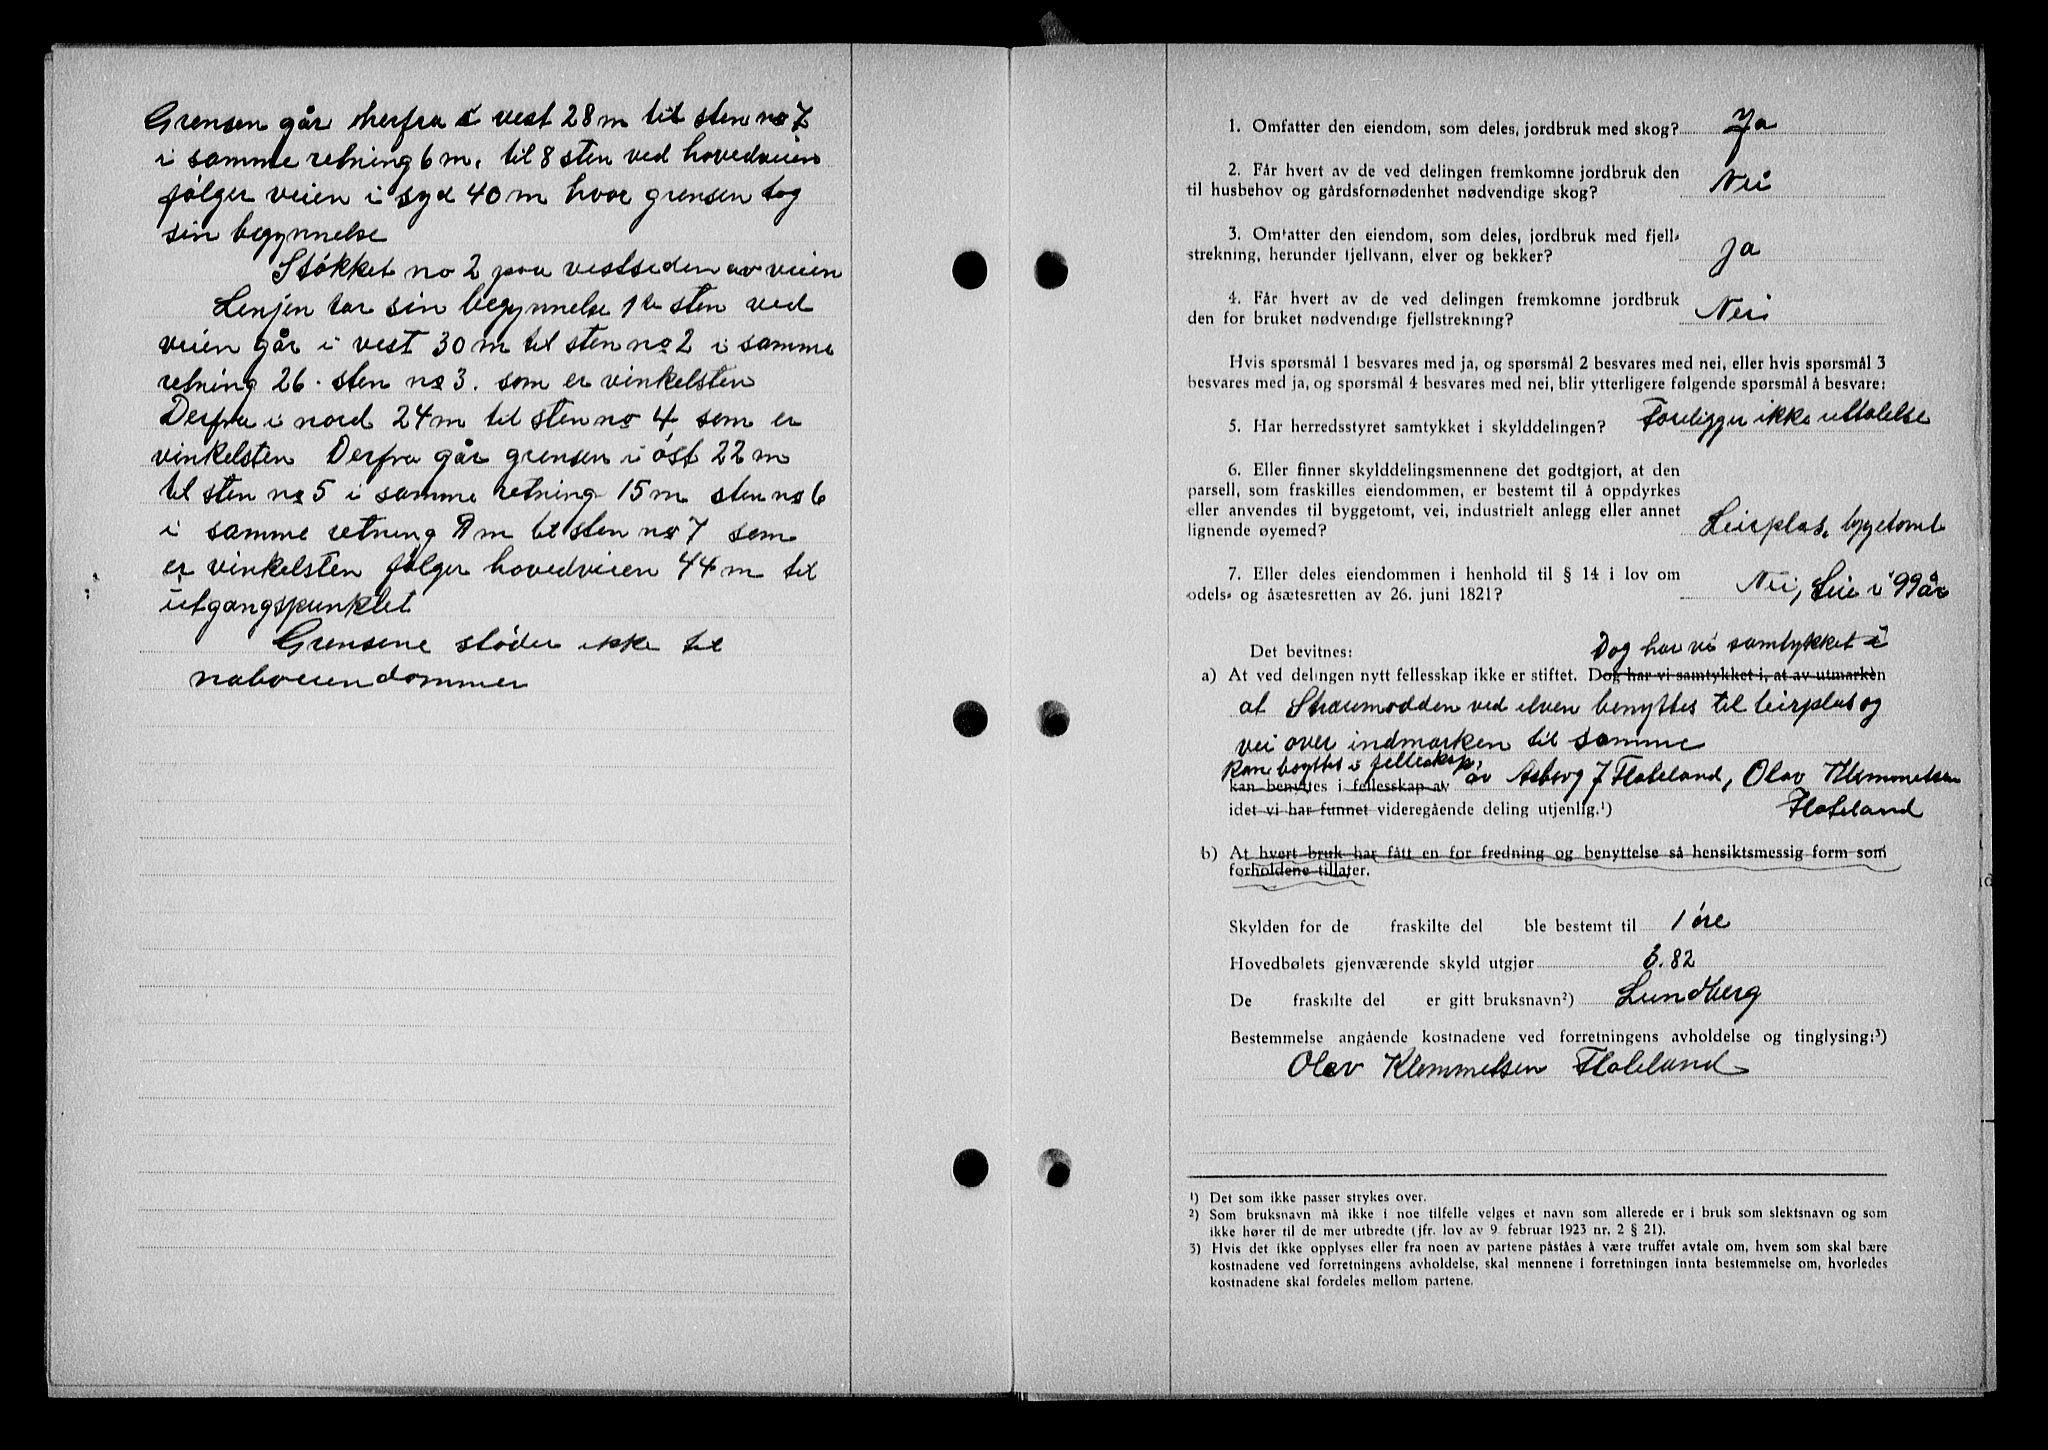 Grensen går herfra i vest 28 m til sten no 7
i samme retning 6 m. til 8 sten ved hovedveien
følger veien i syd 40 m hvor grensen tog
sin begynnelse
Støkket no 2 paa vestsiden av veien
Linjen tar sin begynnelse 1 te sten ved
veien går i vest 30 m til sten no 2 i samme
retning 26 - sten no 3. som er vinkelsten
Derfra i nord 24 m til sten no 4 som er
vinkelsten Derfra går grensen i øst 22 m
til sten no 5 i samme retning 15 m sten no 6
i samme retning 8 m til sten no 7 som
er vinkelsten følger hovedveien 44 m til
utgangspunktet
Grensene støder ikke til
naboeiendommer
1. Omfatter den eiendom, som deles, jordbruk med skog? Ja
2. Får hvert av de ved delingen fremkomne jordbruk den
til husbehov og gårdsfornødenhet nødvendige skog? Nei
3. Omfatter den eiendom, som deles, jordbruk med fjell-
strekning, herunder fjellvann, elver og bekker? Ja
4. Får hvert av de ved delingen fremkomne jordbruk
den for bruket nødvendige fjellstrekning? Nei
Hvis spørsmål 1 besvares med ja, og spørsmål 2 besvares med nei, eller hvis spørsmål 3
besvares med ja, og spørsmål 4 besvares med nei, blir ytterligere følgende spørsmål å besvare:
5. Har herredsstyret samtykket i skylddelingen? Foreligger ikke uttalelse
6. Eller finner skylddelingsmennene det godtgjort, at den
parsell, som fraskilles eiendommen, er bestemt til å oppdyrkes
eller anvendes til byggetomt, vei, industrielt anlegg eller annet
lignende øyemed? Leirplas, byggetomt
7. Eller deles eiendommen i henhold til § 14 i lov om
odels- og åsætesretten av 26. juni 1821? Nei, Leie i 99 år
Det bevitnes: Dog har vi samtykket i
a) At ved delingen nytt fellesskap ikke er stiftet. Dog har vi samtykket i, at av utmarken
at Straumodden ved elven benyttes til leirplas og
vei over indmarken til samme
kan benyttes i felleskap,
kan benyttes i fellesskap av av Asborg J Flateland, Olav Klemmetsen
idet vi har funnet videregående deling utjenlig.¹) Flateland
b) At hvert bruk har fått en for fredning og benyttelse så hensiktsmessig form som
forholdene tillater.
Skylden for de fraskilte del ble bestemt til 1 øre
Hovedbølets gjenværende skyld utgjør 3.82
De fraskilte del er gitt bruksnavn²) Lundberg
Bestemmelse angående kostnadene ved forretningens avholdelse og tinglysing:³)
Olav Klemmetsen Flateland
¹) Det som ikke passer strykes over.
²) Som bruksnavn må ikke i noe tilfelle velges et navn som allerede er i bruk som slektsnavn og som
ikke hører til de mer utbredte (jfr. lov av 9. februar 1923 nr. 2 § 21).
3) Hvis det ikke opplyses eller fra noen av partene påståes å være truffet avtale om, hvem som skal bære
kostnadene ved forretningens avholdelse, skal mennene i forretningen innta bestemmelse om, hvorledes
kostnadene skal fordeles mellom partene.